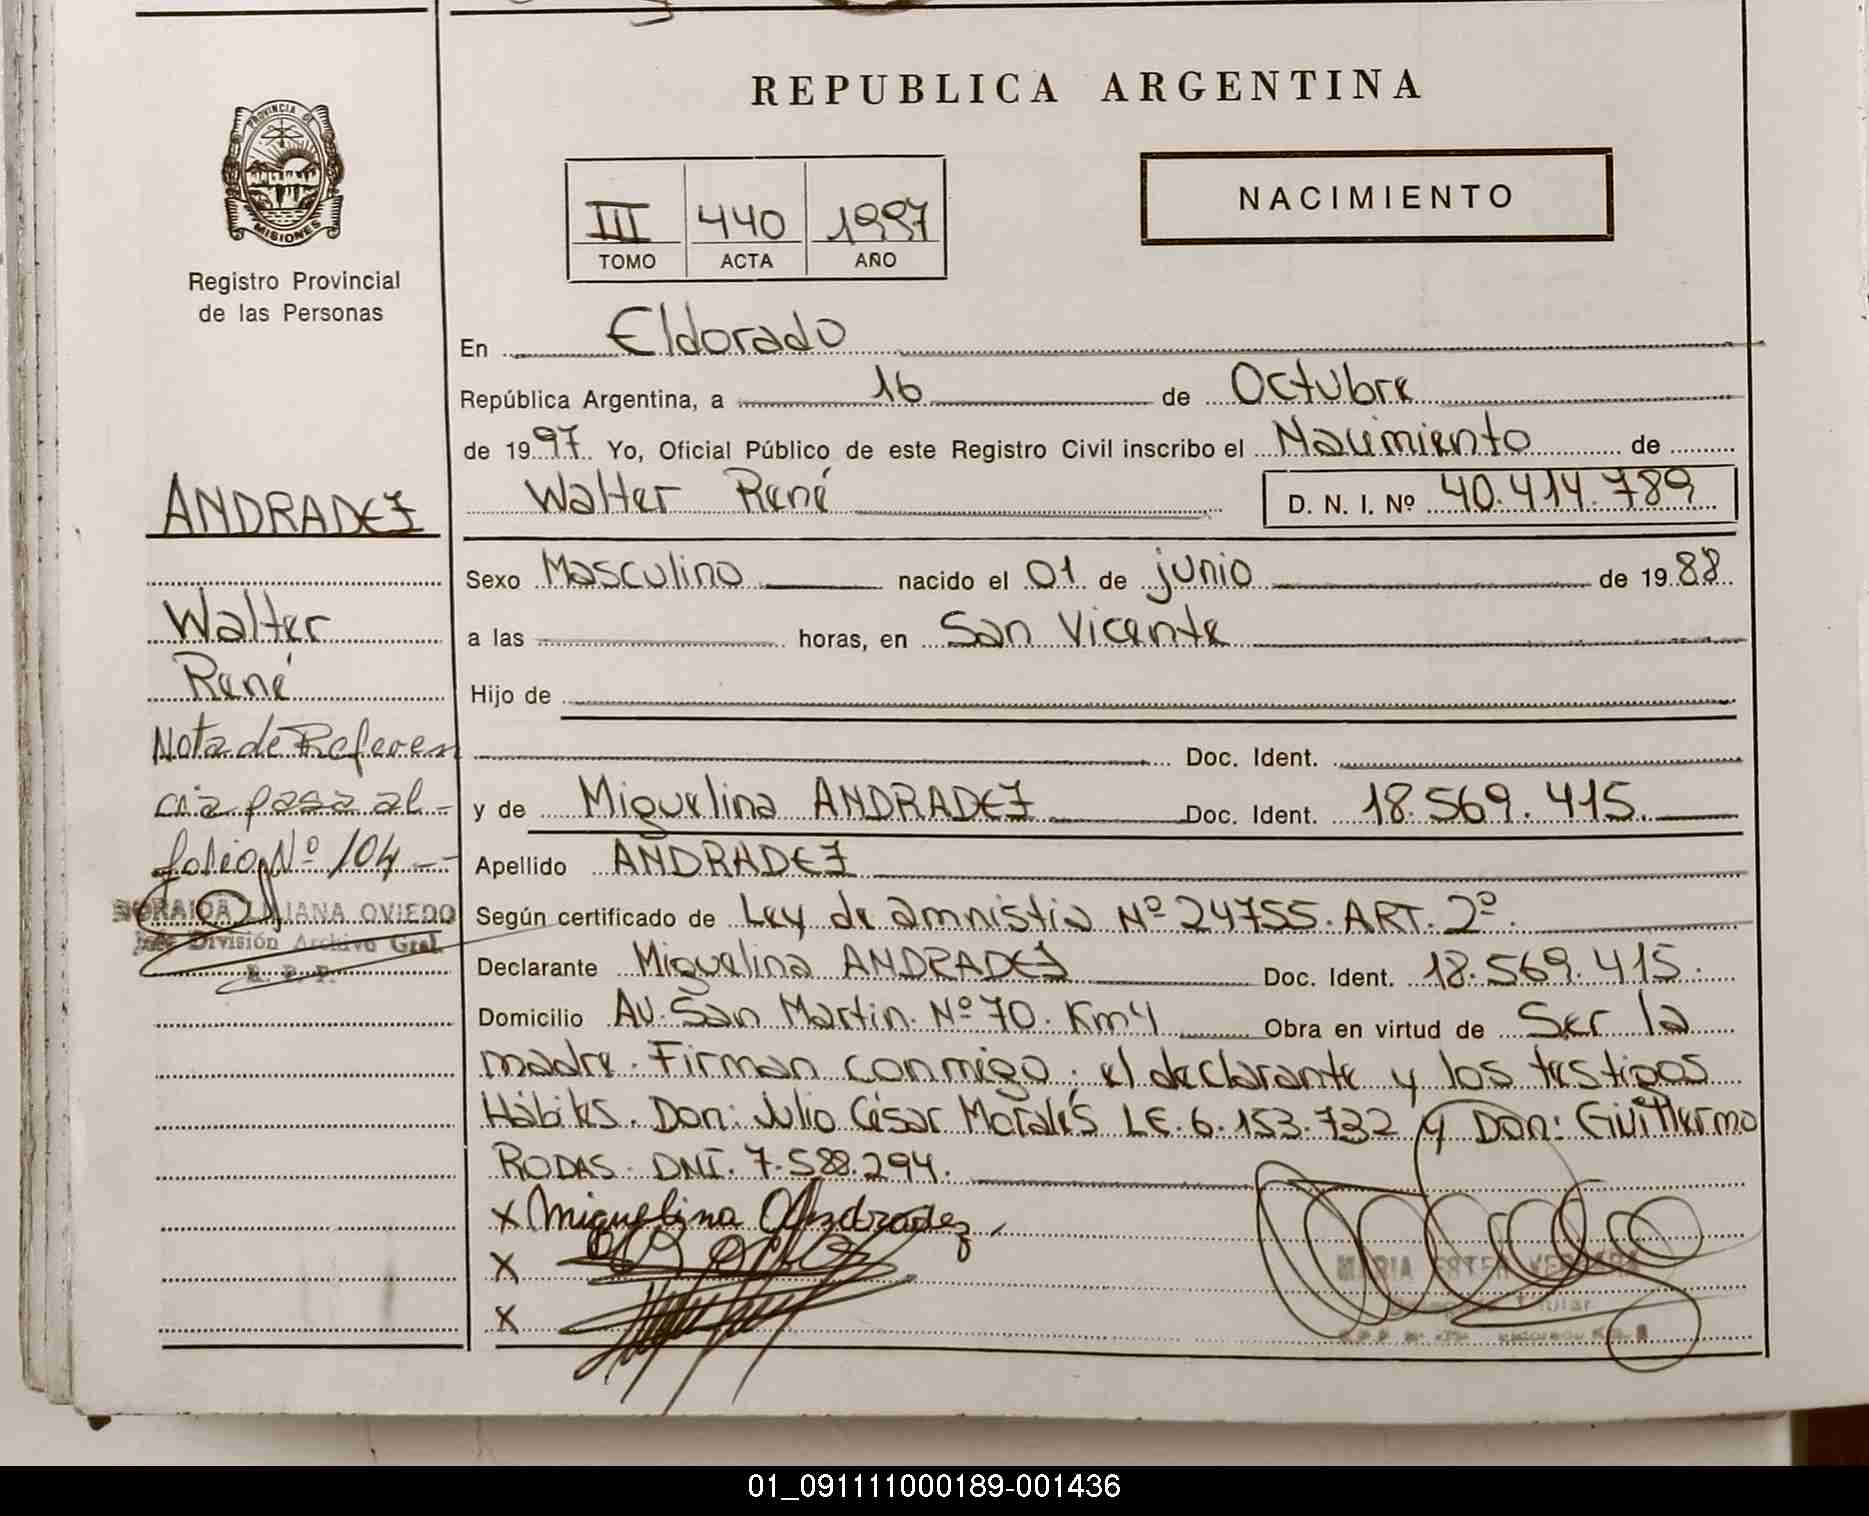 REPUBLICA ARGENTINA
PROVINCIA DE
MISIONES
Registro Provincial
de las Personas
III 440 1997
TOMO ACTA AÑO
NACIMIENTO
En Eldorado
República Argentina, a 16 de Octubre
de 1997 Yo, Oficial Público de este Registro Civil inscribo el Nacimiento de
Walter René D. N. I. Nº 40.414.789
Sexo Masculino nacido el 01 de junio de 1988
a las horas, en San Vicente
Hijo de
Doc. Ident.
y de Miguelina ANDRADEZ Doc. Ident. 18.569.415.
Apellido ANDRADEZ
Según certificado de Ley de amnistia Nº 24755. ART. 2º.
Declarante Miguelina ANDRADEZ Doc. Ident. 18.569.415.
Domicilio AV. San Martin. Nº 70. Km 4 Obra en virtud de Ser la
madre. Firman conmigo; el declarante y los testigos
Hábiles. Don: Julio César Morales LE. 6.153.732 y Don: Guillermo
RODAS. DNI. 7.588.294.
x Miguelina Andradez
x
x
MARIA ESTER VERGARA
Titular
ANDRADEZ
Walter
René
Nota de Referen
cia pasa al
folio Nº 104
LILIANA OVIEDO
Jefe División Archivo Gral.
R. P. P.
01_091111000189-001436